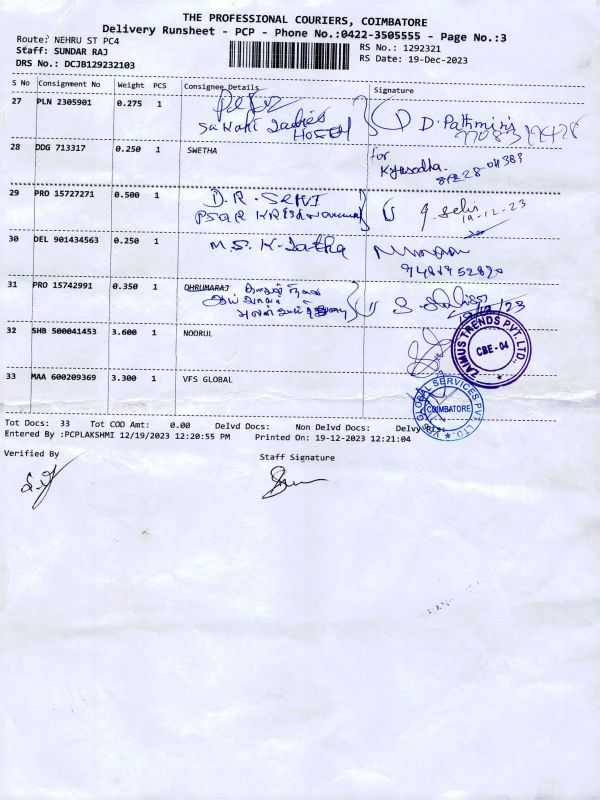 THE PROFESSIONAL COURIERS, COIMBATORE
Delivery Runsheet - PCP - Phone No.:0422-3505555 - Page No.:3
Route: NEHRU ST PC4
RS No.: 1292321
Staff: SUNDAR RAJ
RS Date: 19-Dec-2023
DRS No.: DCJB129232103
S No Consignment No Weight PCS Consignee Details Signature
27 PLN 2305901 0.275 1
Ladies HOSTEL
28 DDG 713317 0.250 1 SWETHA
for
Kyasodha.
29 PRO 15727271 0.500 1 D.R. SELVI
19-12-23
30 DEL 901434563 0.250 1 M.S. K. Latha
31 PRO 15742991 0.350 1 DHRUMARAJ
32 SHB 500041453 3.600 1 NOORUL
ZAIMUS TRENDS PVT. LTD.
CBE - 04
33 MAA 600209369 3.300 1 VFS GLOBAL
VFS GLOBAL SERVICES PVT LTD.
COIMBATORE
Tot Docs: 33 Tot COD Amt: 0.00 Delvd Docs: Non Delvd Docs:
Entered By :PCPLAKSHMI 12/19/2023 12:20:55 PM Printed On: 19-12-2023 12:21:04
Verified By
Staff Signature